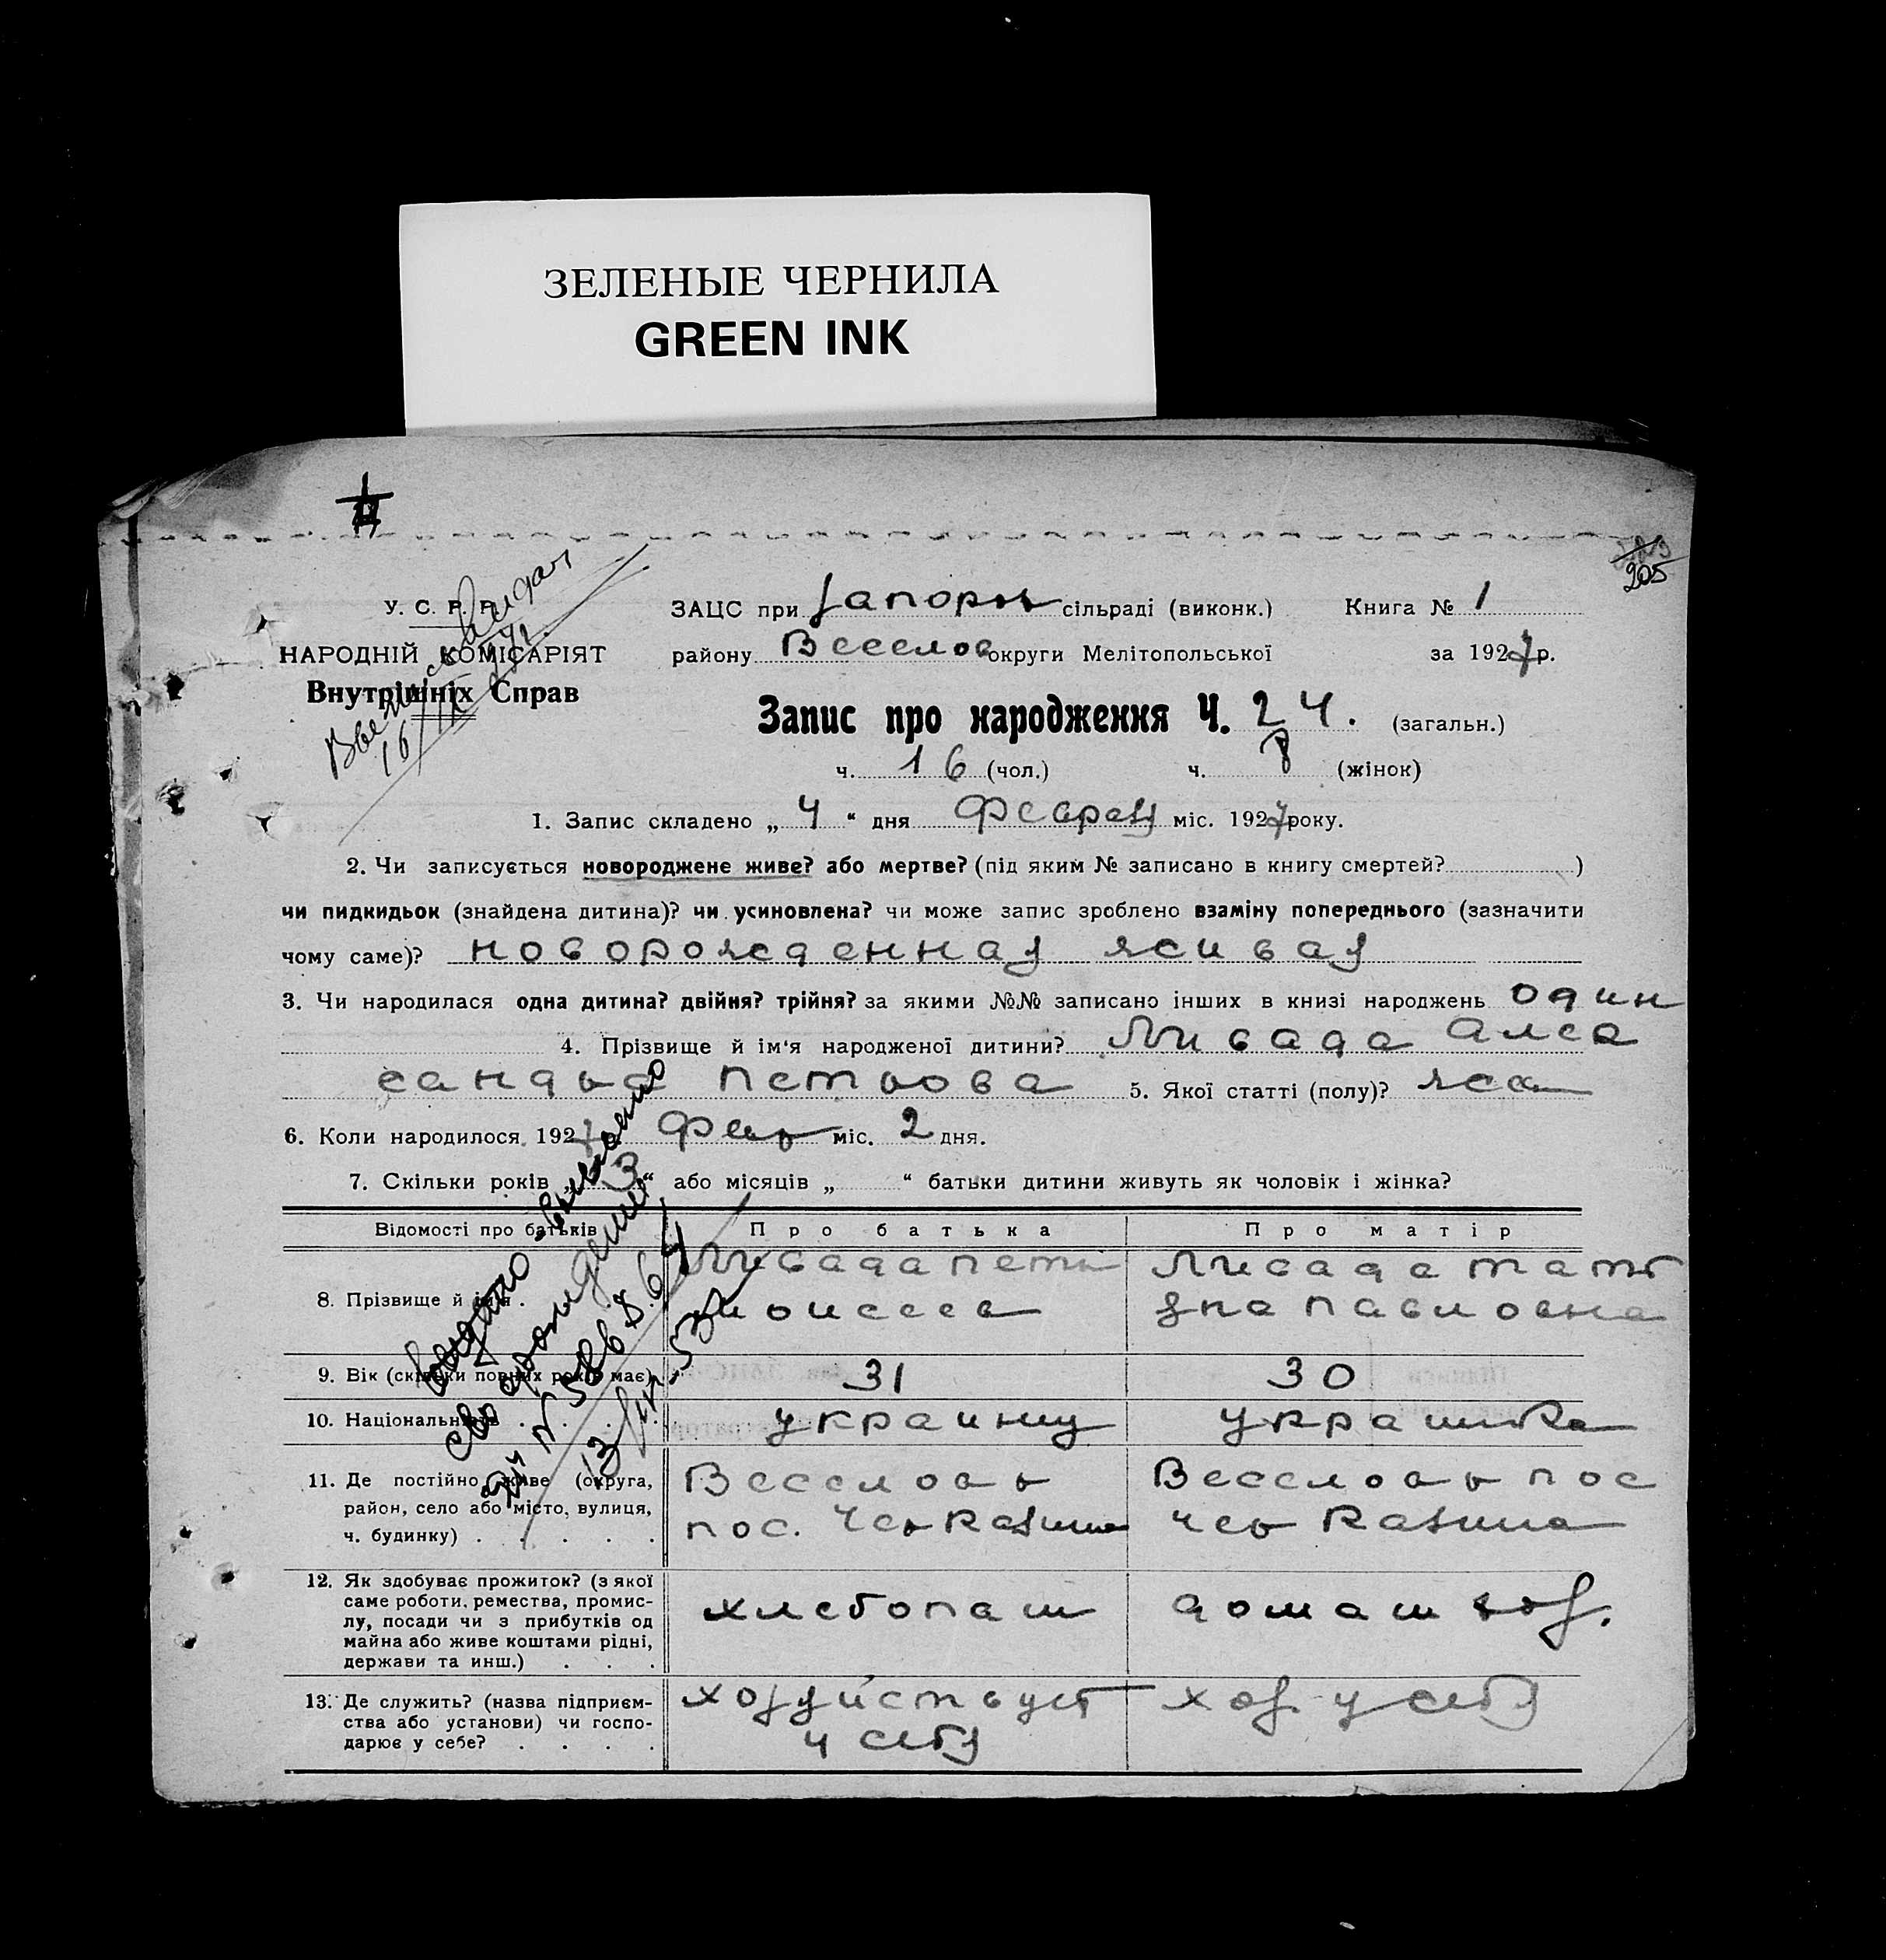 ЗЕЛЕНЫЕ ЧЕРНИЛА
GREEN INK
205
У. С. Р. Р.
НАРОДНІЙ КОМІСАРІЯТ
Внутрішніх Справ
ЗАЦС при Запорож сільраді (виконк.) Книга № 1
району Веселов округи Мелітопольської за 1927 р.
Запис про народження Ч. 24. (загальн.)
ч. 16 (чол.) ч. 8 (жінок)
1. Запис складено „ 4 “ дня Феврал міс. 1927 року.
2. Чи записується новороджене живе? або мертве? (під яким № записано в книгу смертей? )
чи пидкидьок (знайдена дитина)? чи усиновлена? чи може запис зроблено взаміну попереднього (зазначити
чому саме)? новорожденная живая
3. Чи народилася одна дитина? двійня? трійня? за якими №№ записано інших в книзі народжень один
4. Прізвище й ім'я народженої дитини? Лисада Алек
сандра Петрова 5. Якої статті (полу)? жен
6. Коли народилося 1927 р. Февр міс. 2 дня.
7. Скільки років „ 3 “ або місяців „ “ батьки дитини живуть як чоловік і жінка?
Відомості про батьків Про батька Про матір
8. Прізвище й ім'я . Лисада Петр Лисада Тать
Моисеев яна Павловна
9. Вік (скільки повних років має) 31 30
10. Національність . . . украинц украинка
11. Де постійно живе (округа, Веселов Веселов пос
район, село або місто, вулиця, пос.
ч. будинку) . . . . .
12. Як здобуває прожиток? (з якої
саме роботи, ремества, промис-
лу, посади чи з прибутків од хлебопаш домаш хоз.
майна або живе коштами рідні,
держави та инш.) . . .
13. Де служить? (назва підприєм- хозяйствует хоз у себя
ства або установи) чи госпо- у себя
дарює у себе? . . . .